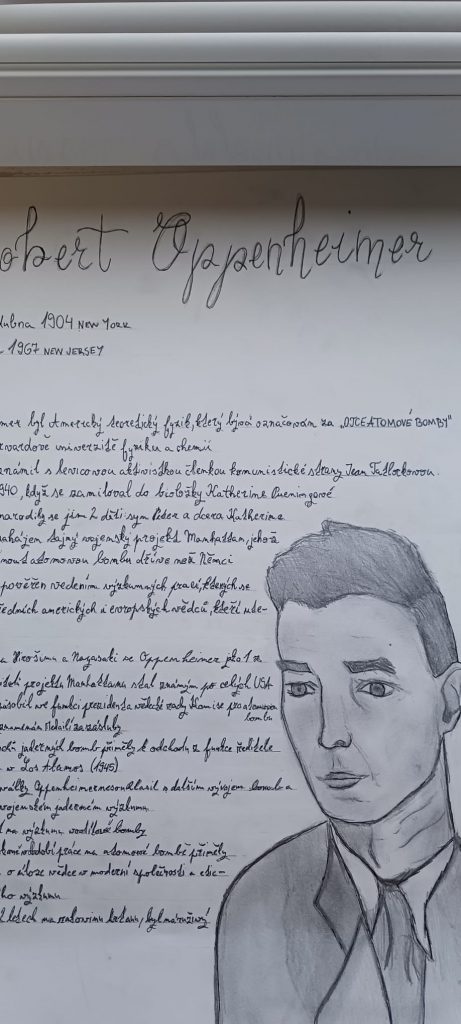 obert Oppenheimer
dubna 1904 NEW YORK
1967 NEW JERSEY
mer byl Americký teoretický fyzik, který bývá označován za „OJCE ATOMOVÉ BOMBY"
rvardově univerzitě fyziku a chemii
známil s levicovou aktivistkou členkou komunistické strany Jean Tatlockovou.
940, když se zamiloval do bioložky Katherine Pueningové
narodily se jim 2 děti syn Peter a dcera Katherine
zahájen tajný vojenský projekt Manhattan, jehož
nout atomovou bombu dříve než Němci
pověřen vedením výzkumných prací, kterých se
ředních amerických i evropských vědců, kteří ute-
a Hirošimu a Nagasaki se Oppenheimer jako 1 z
projektu Manhattanu stal známým po celých USA
ůsobil ve funkci prezidenta rady komise pro atomovou
bombu
Medailí za zásluhy
jaderných bomb přiměly k odchodu z funkce ředitele
v Los Alamos (1945)
války Oppenheimer nesouhlasil s dalším vývojem bomb a
vojenském jaderném výzkumu
na výzkumu vodíkové bomby
období práce na atomové bombě přiměly
o úloze vědce v moderní společnosti a etic-
ho výzkumu
letech na rakovinu hrtanu, byl náruživý